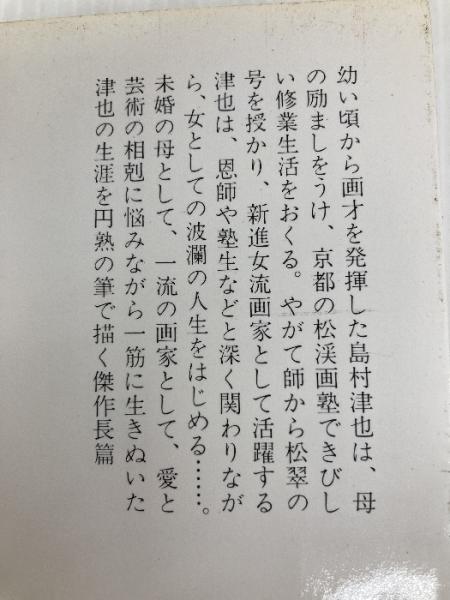 幼い頃から画才を発揮した島村津也は、母
の励ましをうけ、京都の松渓画塾できびし
い修業生活をおくる。やがて師から松翠の
号を授かり、新進女流画家として活躍する
津也は、恩師や塾生などと深く関わりなが
ら、女としての波瀾の人生をはじめる……。
未婚の母として、一流の画家として、愛と
芸術の相剋に悩みながら一筋に生きぬいた
津也の生涯を円熟の筆で描く傑作長篇